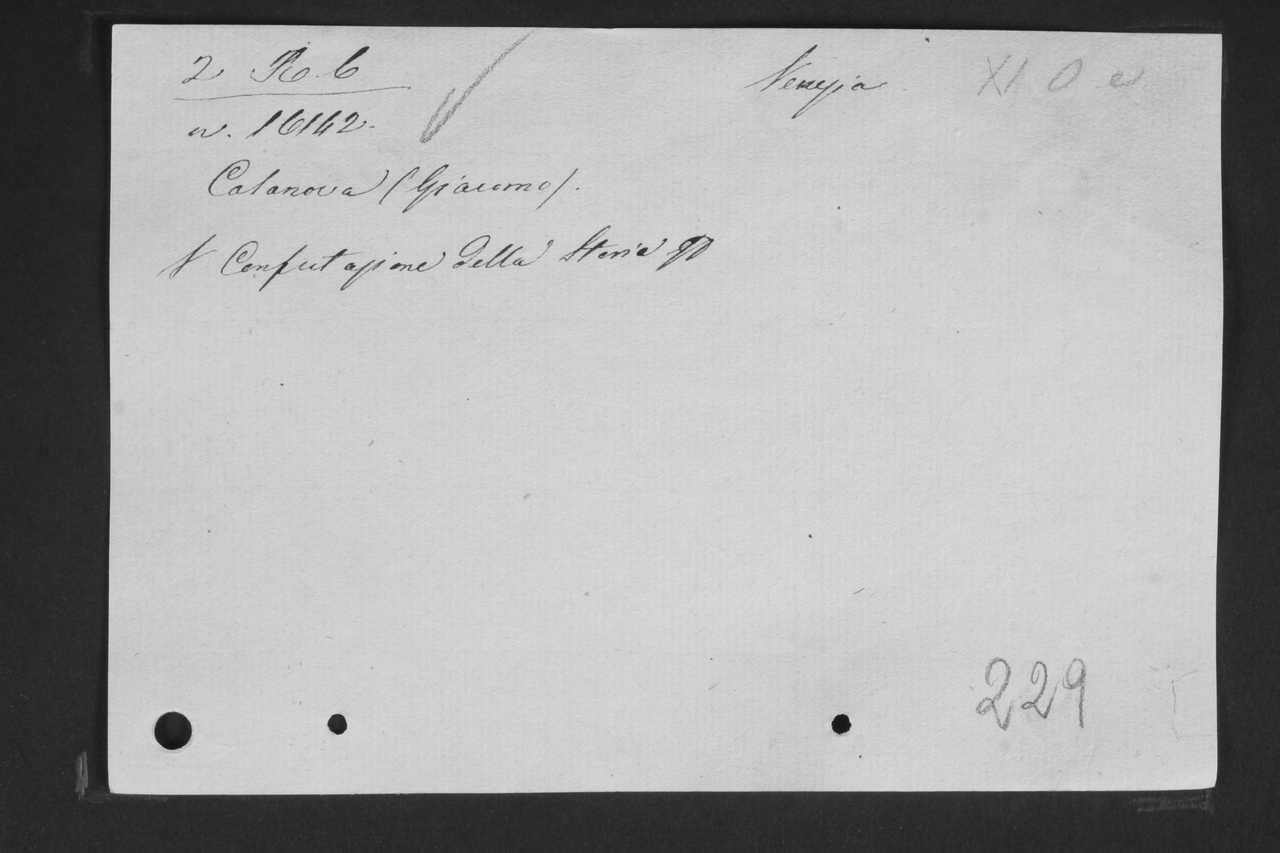 2 Ro. 6
Venezia
XI. D. e
n. 16142.
Casanova (Giacomo).
V Confutazione della Storia
229